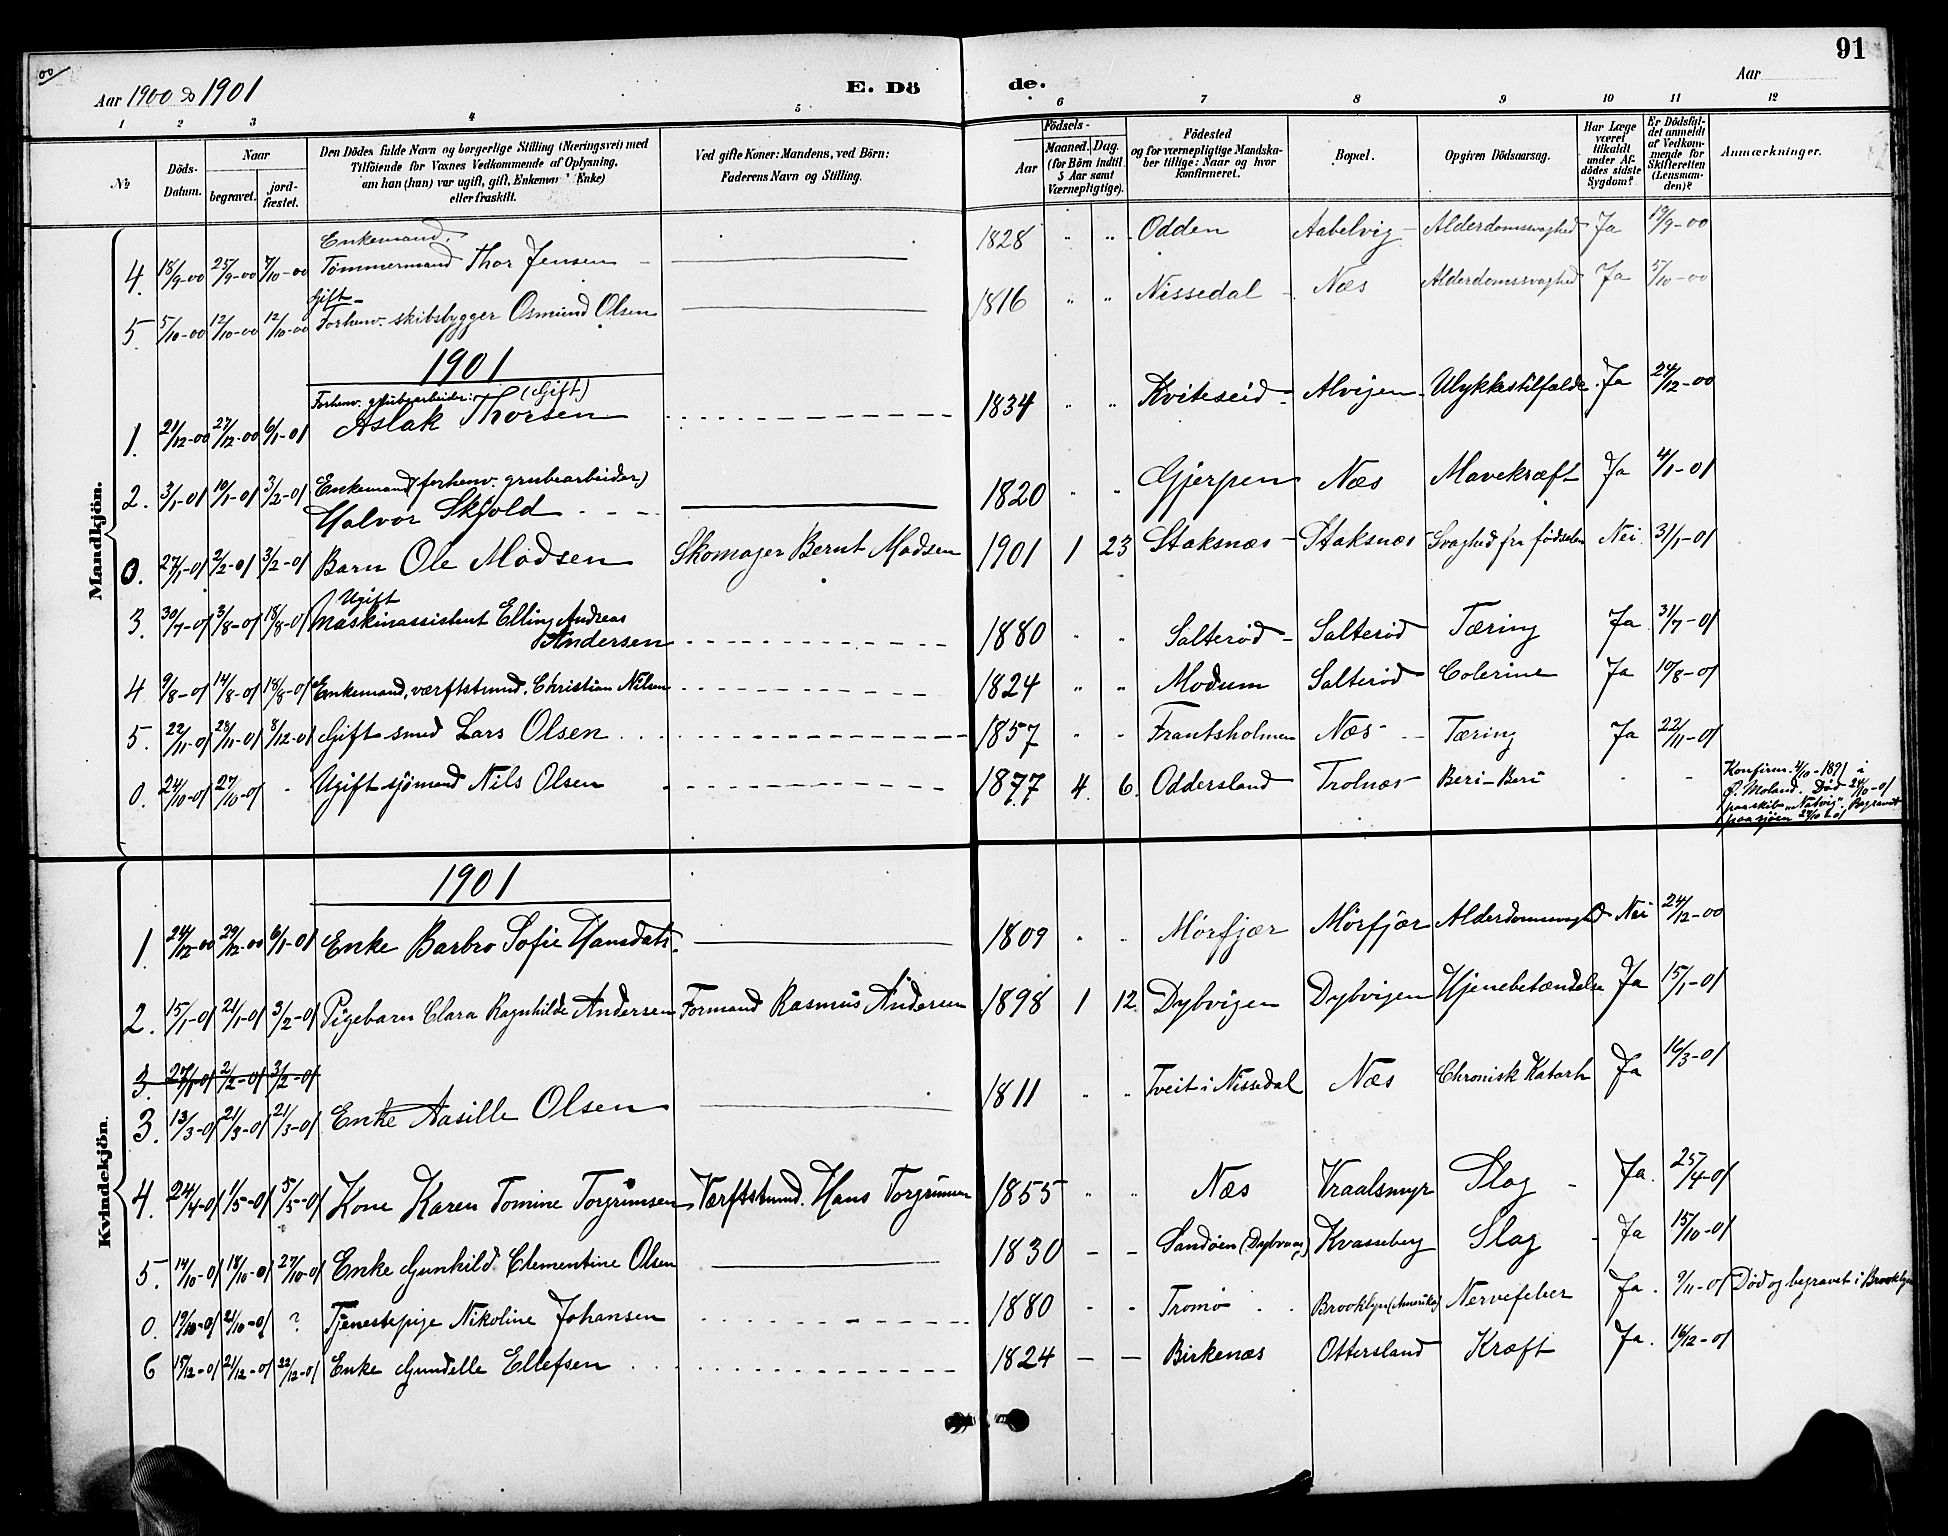 00
91
Aar 1900 & 1901
E. Dö de.
Aar
1 2 3 4 5 6 7 8 9 10 11 12
№
Döds-Datum.
Naar
begravet.
jord-fæstet.
Den Dödes fulde Navn og borgerlige Stilling (Næringsvei) med
Tilföiende for Voxnes Vedkommende af Oplysning,
om han (hun) var ugift, gift, Enkemand (Enke)
eller fraskilt.
Ved gifte Koner: Mandens, ved Börn:
Faderens Navn og Stilling.
Födsels-
Aar
Maaned. Dag.
(for Börn indtil
5 Aar samt
Værnepligtige).
Födested
og for værnepligtige Mandska-
ber tillige: Naar og hvor
konfirmeret.
Bopæl.
Opgiven Dödsaarsag.
Har Læge
været
tilkaldt
under Af-
dödes sidste
Sygdom?
Er Dödsfal-
det anmeldt
af Vedkom-
mende for
Skifteretten
(Lensman-
den)?
Anmærkninger.
Mandkjön.
Enkemand.
4. 18/9-00 25/9-00 7/10-00 Tømmermand Thor Jensen 1828 " " Odden Aabelvig Alderdomssvaghed Ja 19/9-00
Gift
5. 5/10-00 12/10-00 12/10-00 Forhenv. skibsbygger Osmund Olsen 1816 " " Nissedal Næs Alderdomssvaghed Ja 5/10-00
1901
Forhenv. grubearbeider: (Gift)
1. 21/12-00 27/12-00 6/1-01 Aslak Thorsen 1834 " " Kviteseid Alvigen Ulykkestilfælde Ja 24/12-00
Enkemand (forhenv. grubearbeider)
2. 3/1-01 10/1-01 3/2-01 Halvor Skjold 1820 " " Gjerpen Næs Mavekræft Ja 4/1-01
0. 27/1-01 2/2-01 3/2-01 Barn Ole Madsen Skomager Bernt Madsen 1901 1 23 Staksnæs Staksnæs Svaghed fra fødselen Nei 31/1-01
Ugift
3. 30/7-01 3/8-01 18/8-01 Maskinassistent Elling Andreas
Andersen 1880 " " Salterød Salterød Tæring Ja 31/7-01
4 9/8-01 14/8-01 18/8-01 Enkemand, værftstmd. Christian Nilsen 1824 " " Modum Salterød Colerine Ja 10/8-01
5. 22/11-01 28/11-01 8/12-01 Gift smed Lars Olsen 1857 " " Frantsholmen Næs Tæring Ja 22/11-01
0. 24/10-01 27/10-01 Ugift sjömand Nils Olsen 1877 4 6 Oddersland Trolnæs Beri-Beri
Konfirm. 4/10-1891 i
Ø. Moland. Död 24/10-01
paa skib "Natvig". Begravet
paa sjöen 27/10-01
Kvindekjön.
1901
1. 24/12-00 29/12-00 6/1-01 Enke Barbro Sofie Hansdatr. 1809 " " Mörfjær Mörfjær Alderdomssvaghed Nei 24/12-00
2. 15/1-01 21/1-01 3/2-01 Pigebarn Clara Ragnhilde Andersen Formand Rasmus Andersen 1898 1 12 Dybvigen Dybvigen Hjenebetændelse Ja 15/1-01
3. 27/1-01 2/2-01 3/2-01
3. 13/3-01 21/3-01 21/3-01 Enke Aasille Olsen 1811 " " Tveit i Nissedal Næs Chronisk Katarh Ja 16/3-01
4. 24/4-01 1/5-01 5/5-01 Kone Karen Tomine Torgrimsen Værftstmd. Hans Torgrimsen 1855 " " Næs Vraalsmyr Slag Ja. 25/4-01
5. 14/10-01 18/10-01 27/10-01 Enke Gunhild Clementine Olsen 1830 - - Sandöen (Dybvaag) Kvasseberg Slag Ja 15/10-01
0. 19/10-01 21/10-01 ? Tjenestepige Nikoline Johansen 1880 - - Tromö Brooklyn (Amerika) Nervefeber Ja. 9/11-01 Död og begravet i Brooklyn
6 15/12-01 21/12-01 22/12-01 Enke Gundelle Ellefsen 1824 - - Birkenæs Ottersland Kræft Ja. 16/12-01